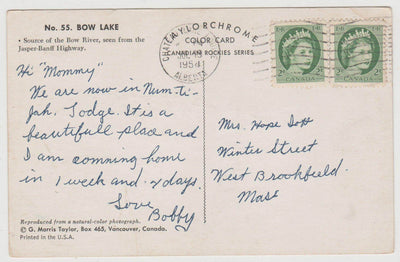 No. 55. BOW LAKE
• Source of the Bow River, seen from the
Jasper-Banff Highway.
TAYLORCHROME
COLOR CARD
CANADIAN ROCKIES SERIES
1954
ALBERTA
2¢ 2¢
CANADA CANADA
Hi "Mommy"
We are now in Num-Ti-
Jah. Lodge. It is a
beautefull place and
I am comming home
in 1 week and 4 days.
Love
Bobby
Mrs. Hope Dott
Winter Street
West Brookfield.
Mass
Reproduced from a natural-color photograph.
© G. Morris Taylor, Box 465, Vancouver, Canada.
Printed in the U.S.A.